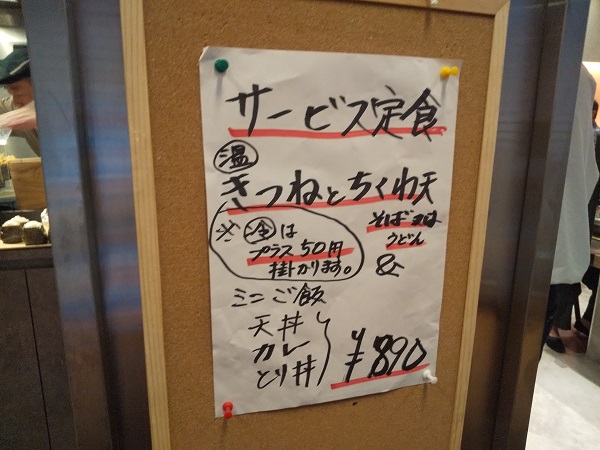 サービス定食
温
きつねとちくわ天
そば又は
うどん
※冷は
プラス50円
掛かります。
&
ミニご飯
天丼
カレー
とり丼
¥890